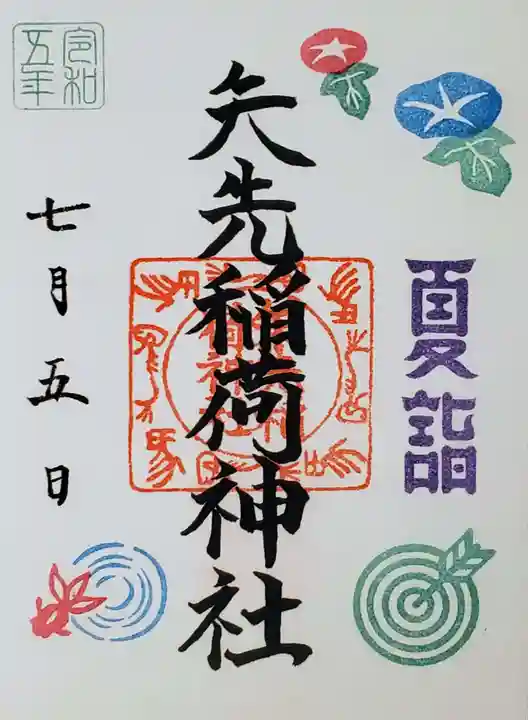 夏詣
矢先稲荷神社
令和
五年
七月五日